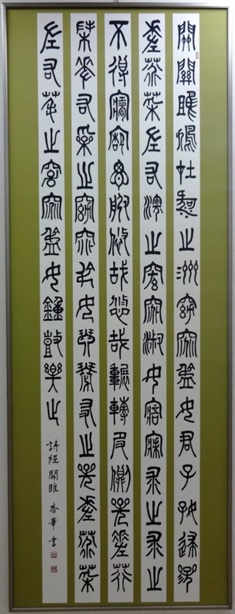 關關雎鳩在河之洲窈窕淑女君子好逑參
差荇菜左右流之窈窕淑女寤寐求之求之
不得寤寐思服悠哉悠哉輾轉反側參差荇
菜左右采之窈窕淑女琴瑟友之參差荇菜
左右芼之窈窕淑女鍾鼓樂之
詩經關雎 杏華書